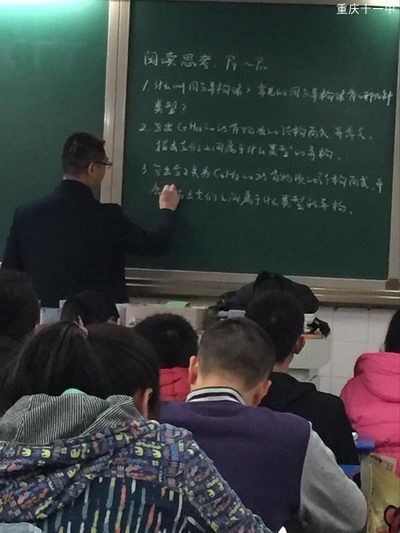 重庆十一中
阅读思考, P₁~P₂
1. 什么叫同分异构体? 常见的同分异构体有哪几种
类型?
2. 写出 的有机物的结构简式, 并
指出它们之间属于什么类型的异构。
3. 写出分子式为 的有机物的结构简式, 并
指出它们之间属于什么类型的异构。